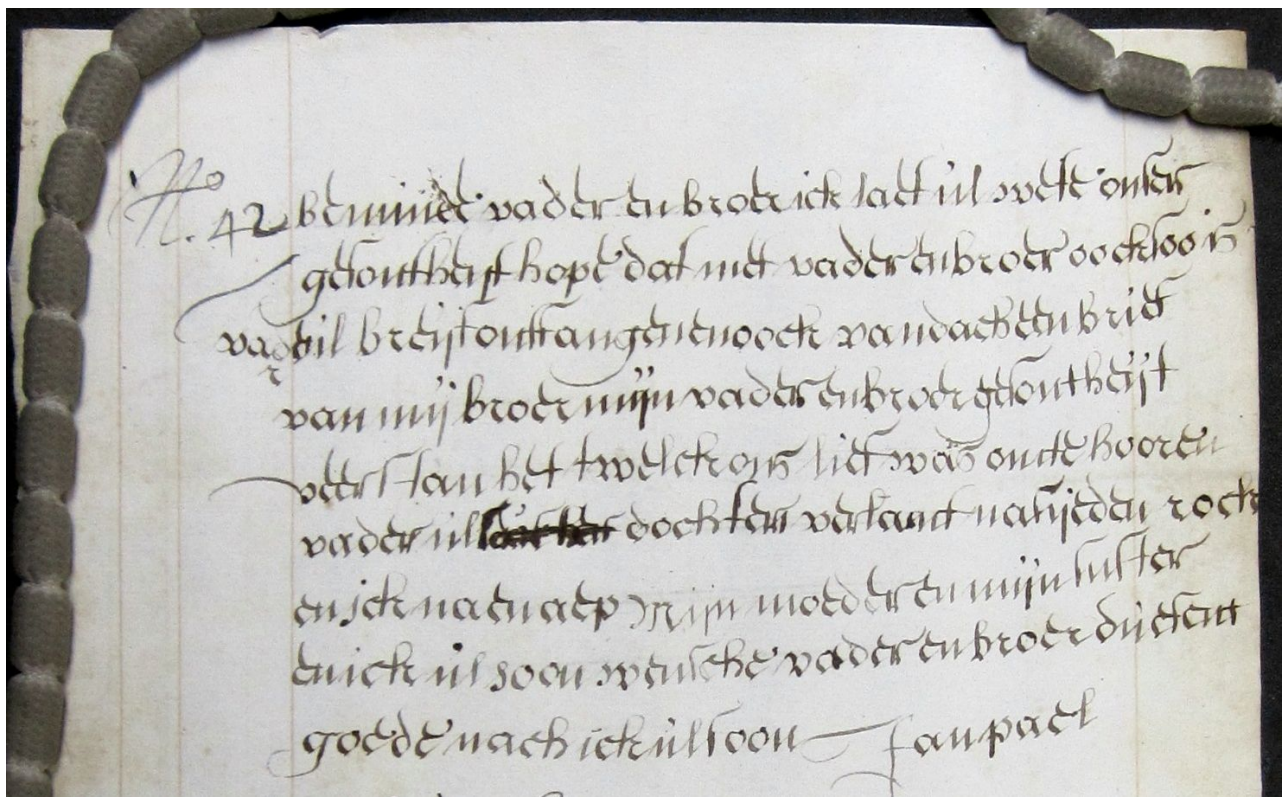 No. 42 beminde vader en broer ick laet ul wete onser
gesontheijt hope dat met vader en broer oock soo is
vader ul breijf ontfangen en oock van dach een brief
van mij broer mijn vader en broer gesontheijt
veerstan het twelck ons lief was om te hooren
vader ul dochter verlanct na sijeden rock
en ick na en aep Mijn moeder en mijn suster
en ick ul soon wensche vader en broer duesent
goede nach ick ul soon Jan pael